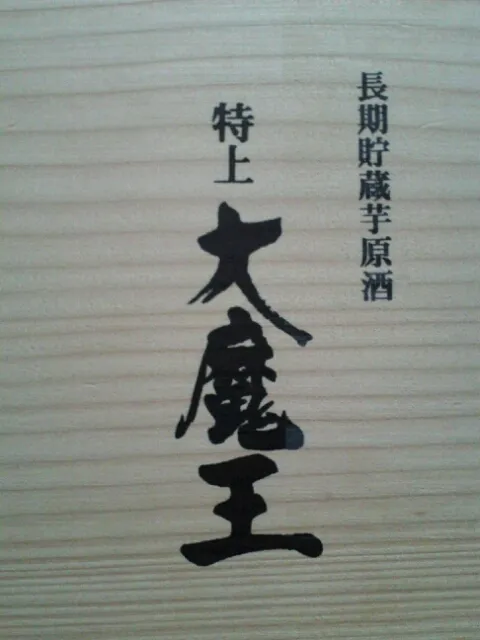 長期貯蔵芋原酒
特上
大魔王